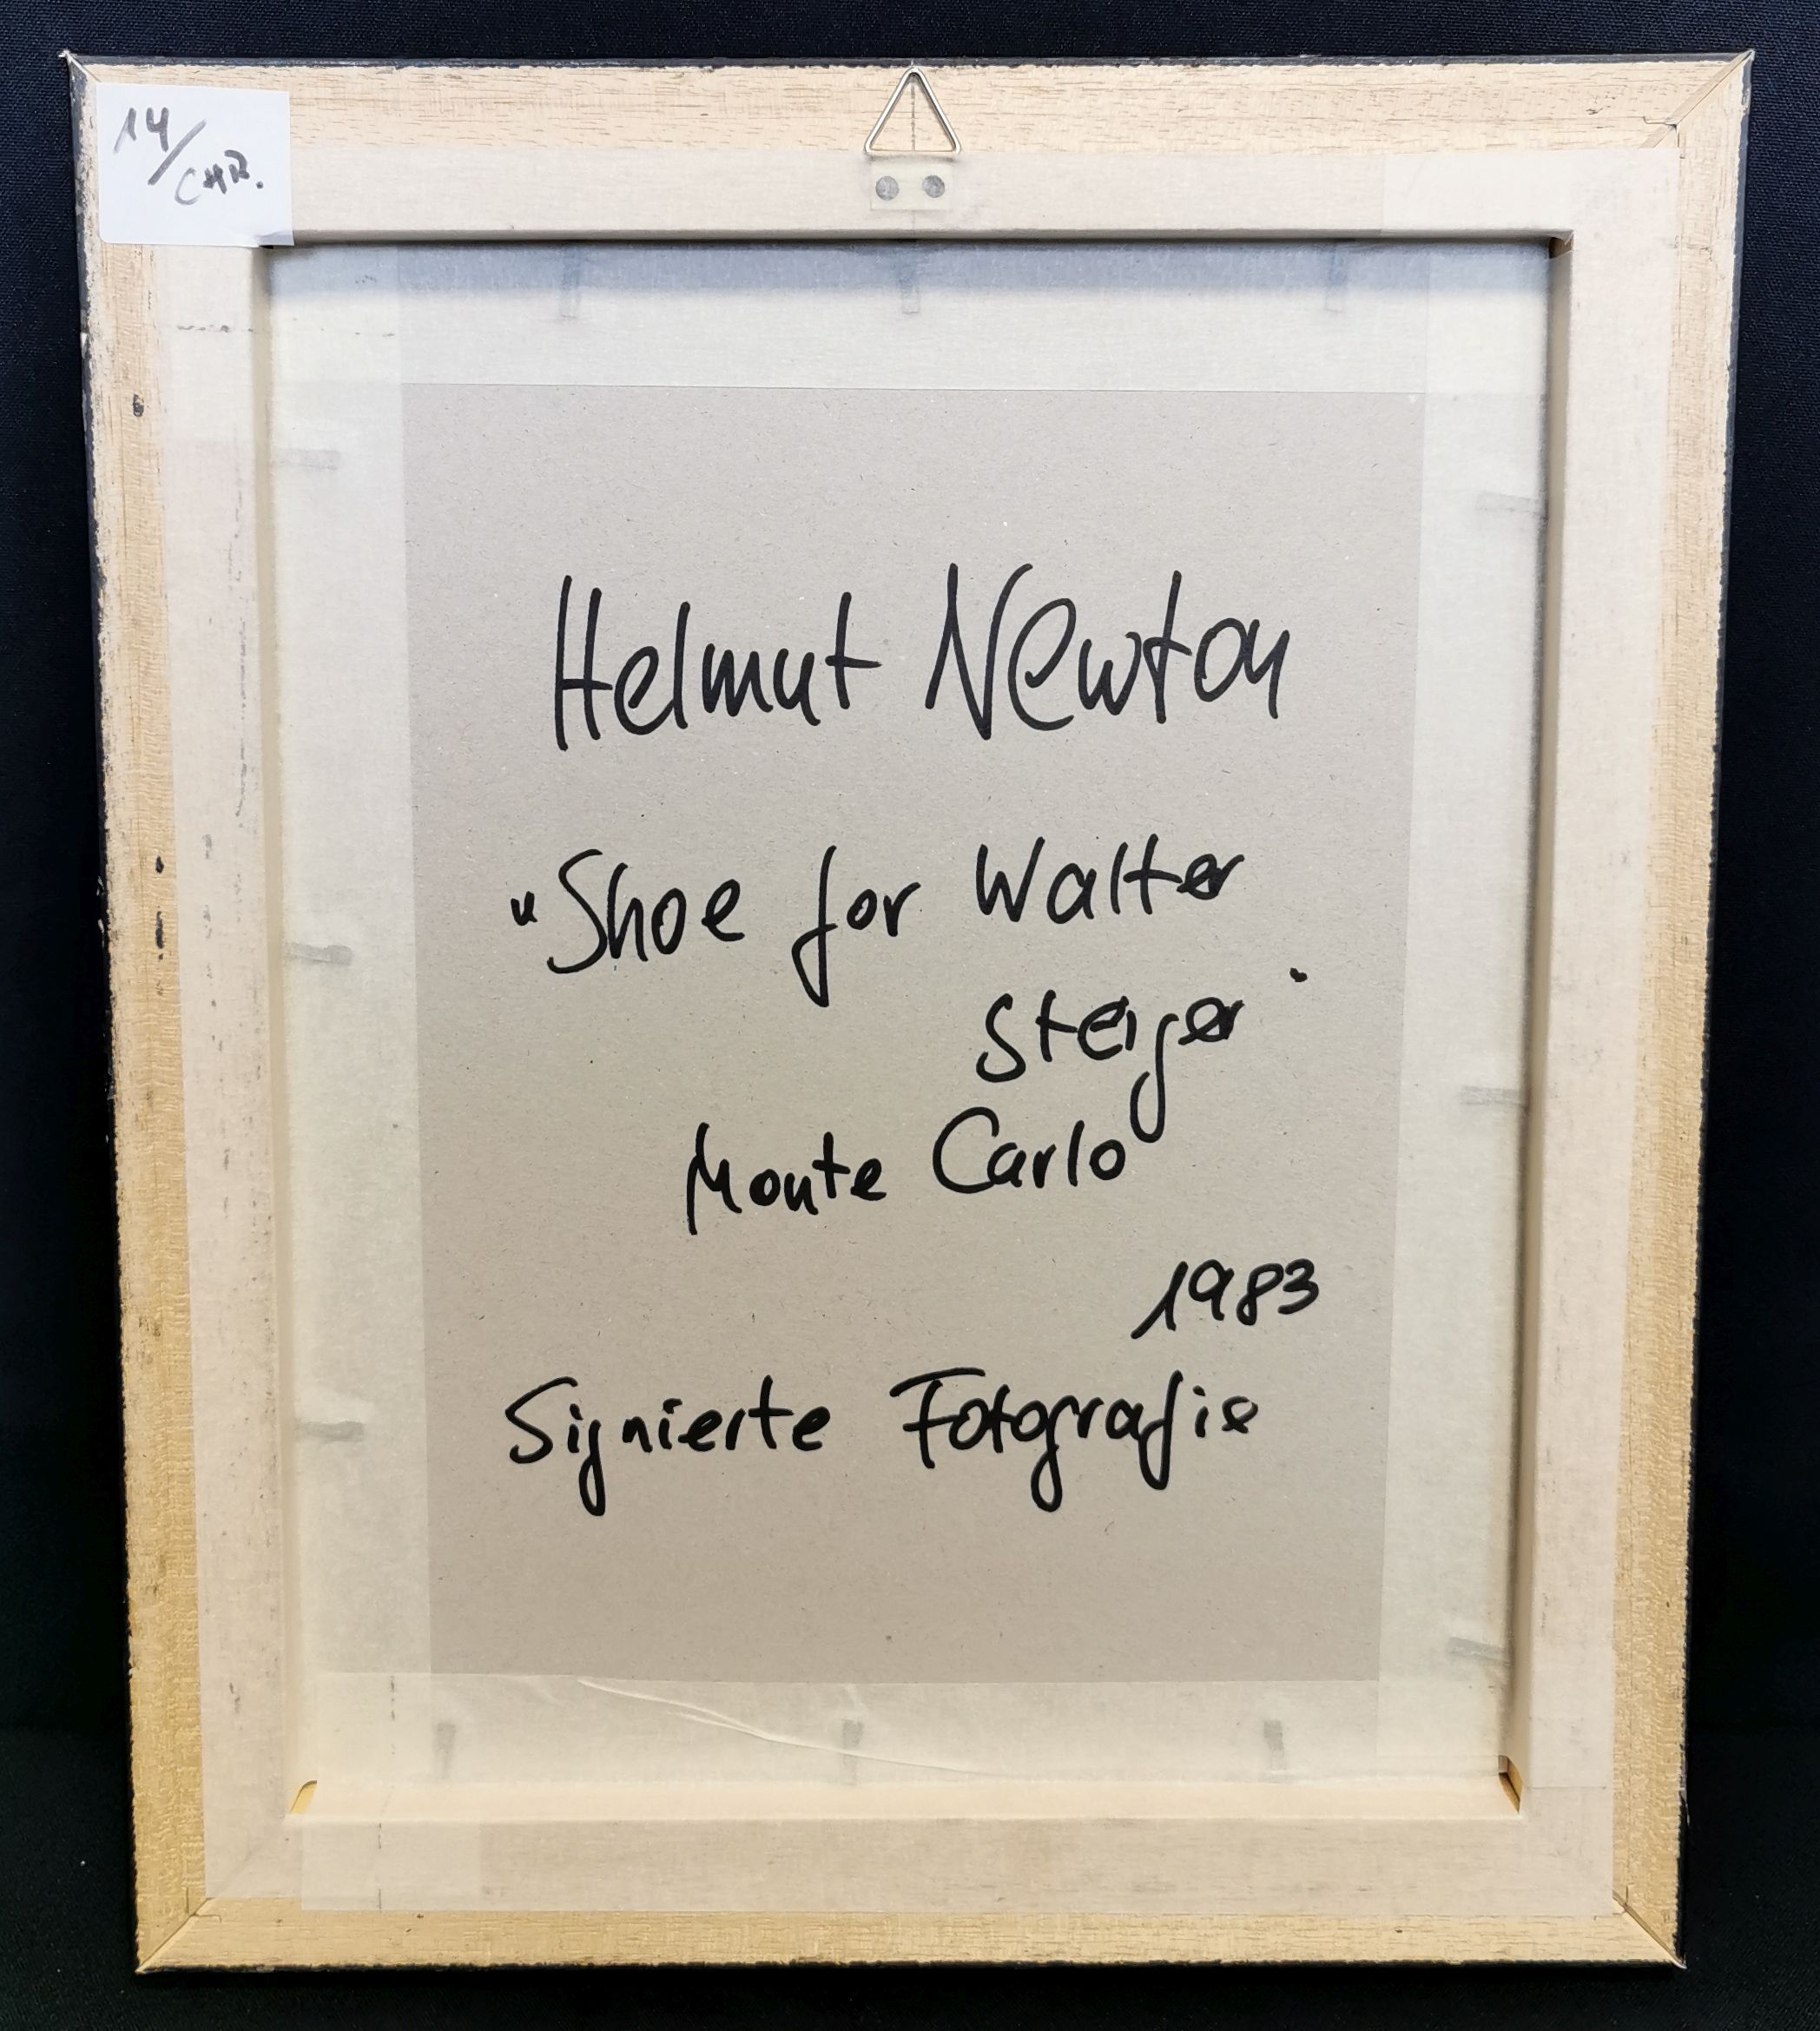 14/
CHR.
Helmut Newton
"Shoe for Walter
Steiger"
Monte Carlo
1983
Signierte Fotografie